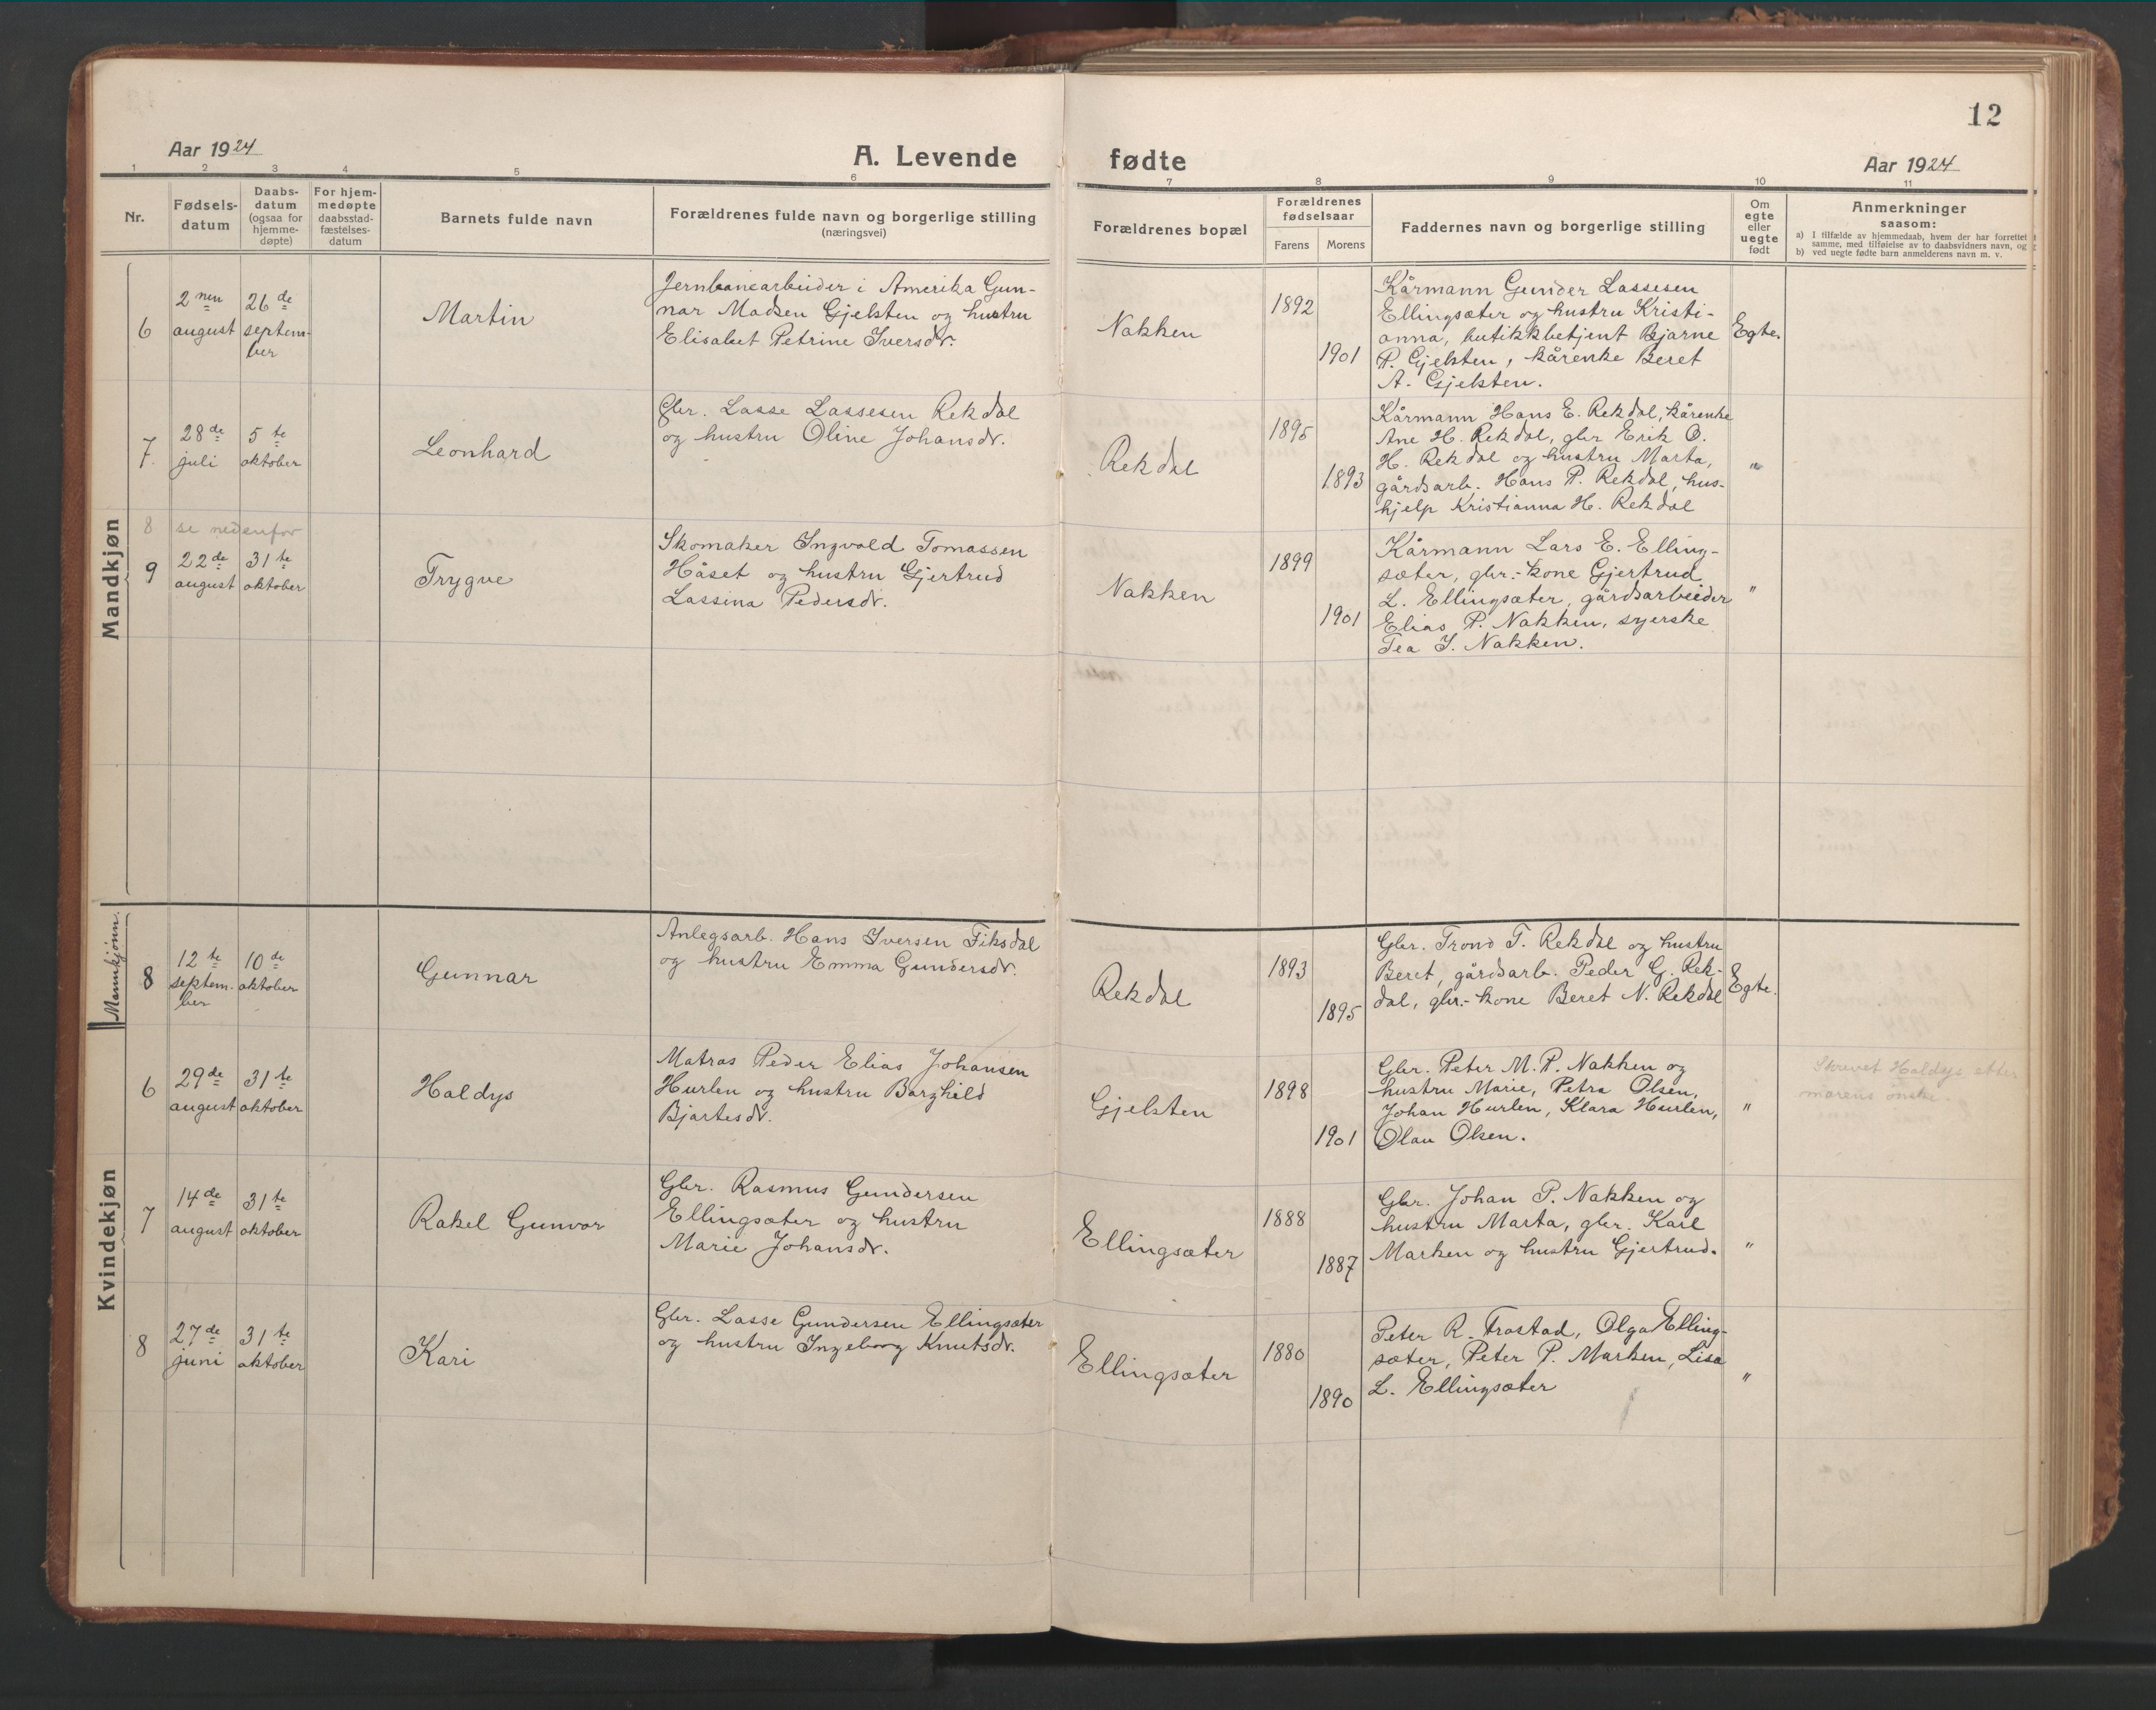 12
Aar 1924
A. Levende
fødte
Aar 1924
1 2 3 4 5 6 7 8 9 10 11
Nr.
Fødsels-
datum
Daabs-
datum
(ogsaa for
hjemme-
døpte)
For hjem-
medøpte
daabsstad-
fæstelses-
datum
Barnets fulde navn
Forældrenes fulde navn og borgerlige stilling
(næringsvei)
Forældrenes bopæl
Forældrenes
fødselsaar
Farens Morens
Faddernes navn og borgerlige stilling
Om
egte
eller
uegte
født
Anmerkninger
saasom:
a) I tilfælde av hjemmedaab, hvem der har forrettet
samme, med tilføielse av to daabsvidners navn, og
b) ved uegte fødte barn anmelderens navn m. v.
Mandkjøn
6
2 nen
august
26 de
septem-
ber
Martin
Jernbanearbeider i Amerika Gun-
nar Madsen Gjelsten og hustru
Elisabet Petrine Iversdr.
Nakken
1892
1901
Kårmann Gunder Lassesen
Ellingsæter og hustru Kristi-
anna, butikkbetjent Bjarne
P. Gjelsten, kårenke Beret
A. Gjelsten.
Egte.
7.
28 de
juli
5 te
oktober
Leonhard
Gbr. Lasse Lassesen Rekdal
og hustru Oline Johansdr.
Rekdal
1895
1893
Kårmann Hans E. Rekdal, kårenke
Ane H. Rekdal, gbr Erik O.
H. Rekdal og hustru Marta,
gårdsarb. Hans P. Rekdal, hus-
hjelp Kristianna H. Rekdal
"
8 se nedenfor
9
22 de
august
31 te
oktober
Trygve
Skomaker Ingvald Tomassen
Håset og hustru Gjertrud
Lassina Pedersdr.
Nakken
1899
1901
Kårmann Lars E. Elling-
sæter, gbr.-kone Gjertrud
L. Ellingsæter, gårdsarbeider
Elias P. Nakken, syerske
Tea I. Nakken.
"
Mannkjønn.
8
12 te
septem-
ber
10 de
oktober
Gunnar
Anlegsarb. Hans Iversen Fiksdal
og hustru Emma Gundersdr.
Rekdal
1893
1895
Gbr. Trond T. Rekdal og hustru
Beret, gårdsarb. Peder G. Rek-
dal, gbr.-kone Beret N. Rekdal
Egte.
Kvindekjøn
6
29 de
august
31 te
oktober
Haldys
Matros Peder Elias Johansen
Hurlen og hustru Borghild
Bjartesdr.
Gjelsten
1898
1901
Gbr. Peter M. P. Nakken og
hustru Marie, Petra Olsen,
Johan Hurlen, Klara Hurlen,
Olav Olsen.
"
Skrevet Haldys etter
morens ønske.
7
14 de
august
31 te
oktober
Rakel Gunvor
Gbr. Rasmus Gundersen
Ellingsæter og hustru
Marie Johansdr.
Ellingsæter
1888
1887
Gbr. Johan P. Nakken og
hustru Marta, gbr. Karl
Marken og hustru Gjertrud.
"
8
27 de
juni
31 te
oktober
Kari
Gbr. Lasse Gundersen Ellingsæter
og hustru Ingeborg Knutsdr.
Ellingsæter
1880
1890
Peter R. Frostad, Olga Elling-
sæter, Peter P. Marken, Lisa
L. Ellingsæter
"